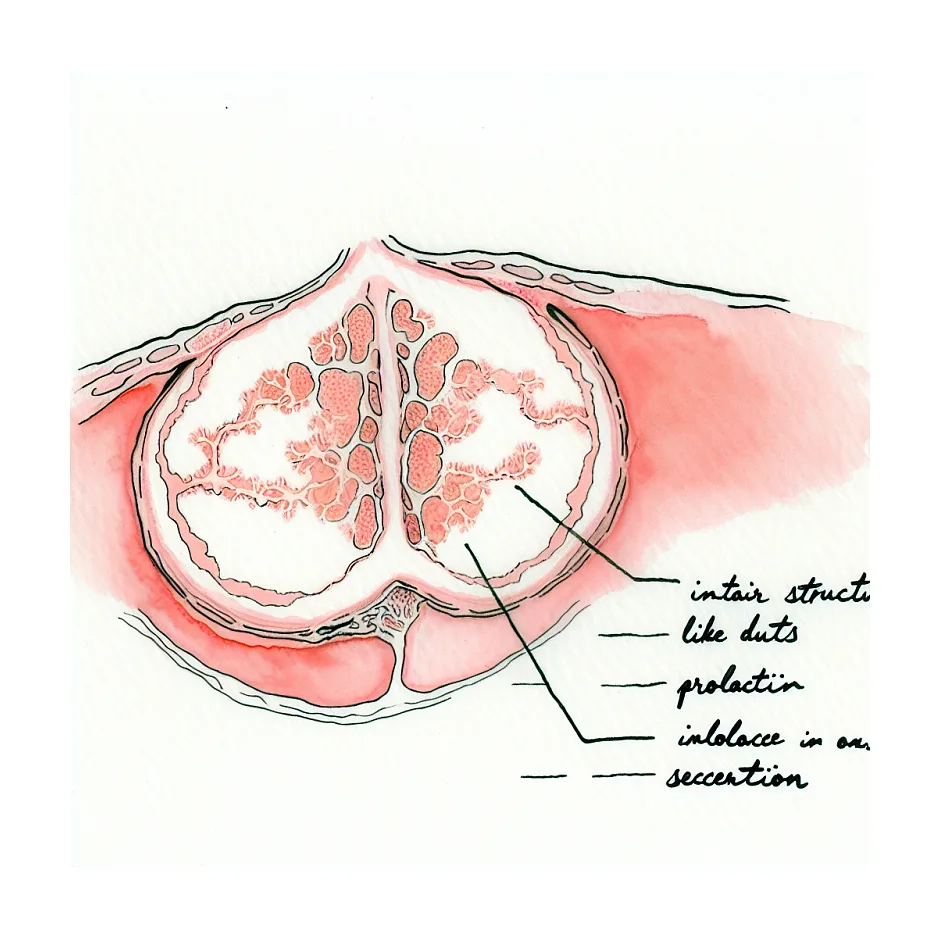 intair structu
like duts
prolactin
inlolacce in on
seccention